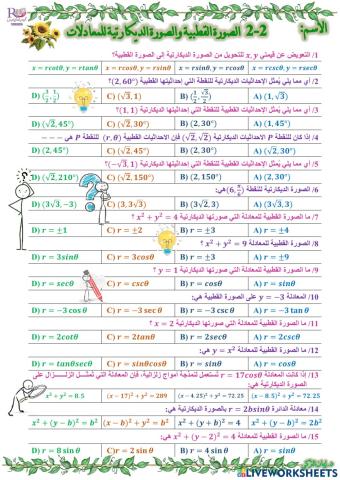 الاسم:
2-2 الصورة القطبية والصورة الديكارتية للمعادلات
1/ التعويض عن قيمتي x, y للتحويل من الصورة الديكارتية إلى الصورة القطبية؟
A) x = rcscθ, y = rsecθ B) x = rsinθ, y = rcosθ C) x = rcosθ, y = rsinθ D) x = rcotθ, y = rtanθ
2/ أي مما يلي يُمثل الإحداثيات الديكارتية للنقطة التي إحداثيتها القطبية (2, 60°) ؟
A) (1, √3) C) (√3, 1)
3/ أي مما يلي يُمثل الإحداثيات القطبية للنقطة التي إحداثيتها الديكارتية (1, 1) ؟
A) (1, 45°) B) (2, 30°) C) (√2, 30°) D) (√2, 45°)
4/ إذا كان للنقطة P الإحداثيات الديكارتية (√2, √2) فإن الإحداثيات القطبية (r, θ) للنقطة P هي ---
A) (√2, 30°) B) (√2, 45°) C) (2, 30°) D) (2, 45°)
5/ أي مما يلي يُمثل الإحداثيات القطبية للنقطة التي إحداثيتها الديكارتية (−√3, 1) ؟
A) (2, 30°) B) (2, 150°) C) (√2, 150°) D) (√2, 210°)
6/ الصورة الديكارتية للنقطة (6, π/6) هي:
A) (3, √3) B) (3√2, 3) C) (3, 3√3) D) (3√3, −3)
7/ ما الصورة القطبية للمعادلة التي صورتها الديكارتية x² + y² = 4 ؟
A) r = ±4 B) r = ±3 C) r = ±2 D) r = ±1
8/ الصورة القطبية للمعادلة x² + y² = 9 ؟
A) r = ±9 B) r = ±3 C) r = 3cosθ D) r = 3sinθ
9/ ما الصورة القطبية للمعادلة التي صورتها الديكارتية y = 1 ؟
A) r = sinθ B) r = cosθ C) r = cscθ D) r = secθ
10/ المعادلة y = −3 على الصورة القطبية هي:
A) r = −3 tan θ B) r = −3 csc θ C) r = −3 sec θ D) r = −3 cos θ
11/ ما الصورة القطبية للمعادلة التي صورتها الديكارتية x = 2 ؟
A) r = 2cscθ B) r = 2secθ C) r = 2tanθ D) r = 2cotθ
12/ ما الصورة القطبية للمعادلة y = x² هي:
A) r = cosθ B) r = sinθ C) r = sinθcosθ D) r = tanθsecθ
13/ إذا كانت المعادلة r = 17cosθ تستعمل لنمذجة أمواج زلزالية، فإن المعادلة التي تُمثل الزلزال على الصورة الديكارتية هي:
(x − 8.5)² + y² = 72.25 (x − 4.25)² + y² = 72.25 (x − 17)² + y² = 289 x² + y² = 8.5
14/ معادلة الدائرة r = 2bsinθ بالصورة الديكارتية هي:
x² + (y − b)² = 2b² x² + (y + b)² = 4 (x − b)² + y² = b² x² + (y − b)² = b²
15/ ما الصورة القطبية للمعادلة x² + (y − 2)² = 4 هي:
A) r = sin θ B) r = 4 sin θ C) r = 2 sin θ D) r = 8 sin θ
LIVEWORKSHEETS